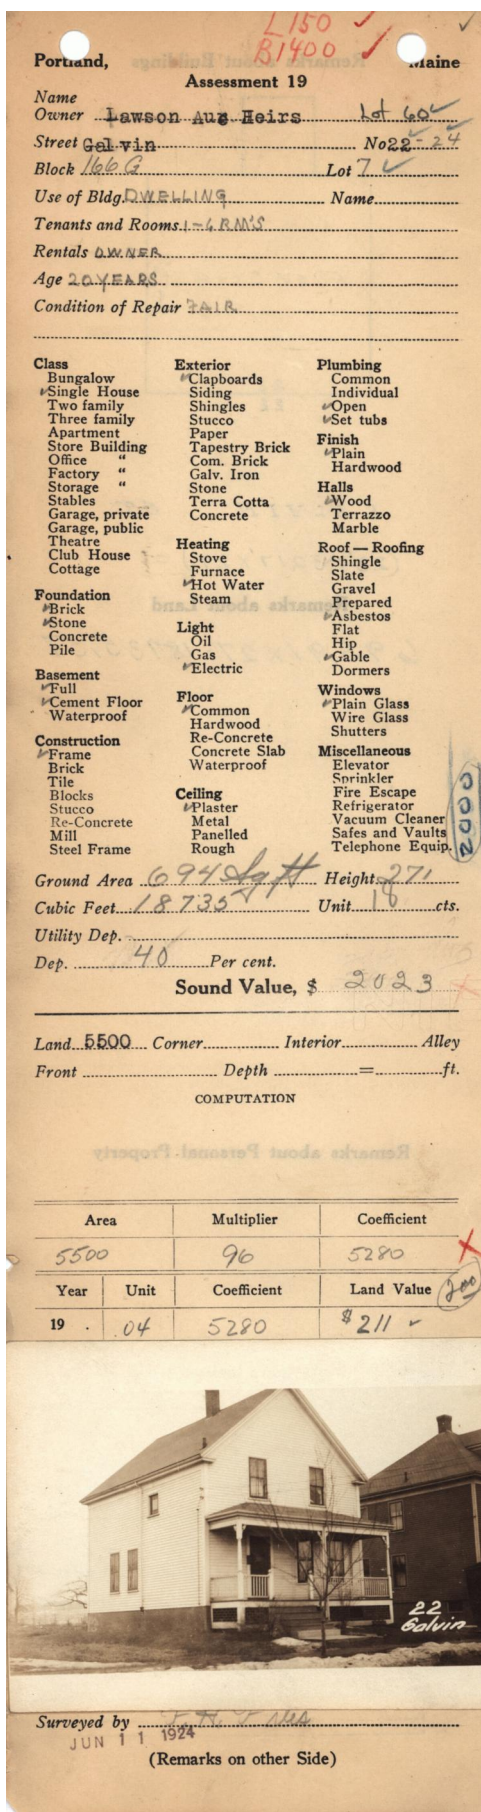 L 150 ✓
B 1400 ✓
Portland, Maine
Assessment 19
Name
Owner Lawson Aug Heirs Lot 60 ✓
Street Galvin No 22 - 24
Block 166 G Lot 7 ✓
Use of Bldg. DWELLING Name
Tenants and Rooms 1-6 RM'S
Rentals OWNER
Age 20 YEARS
Condition of Repair FAIR
Class
Bungalow
✓Single House
Two family
Three family
Apartment
Store Building
Office "
Factory "
Storage "
Stables
Garage, private
Garage, public
Theatre
Club House
Cottage
Foundation
✓Brick
✓Stone
Concrete
Pile
Basement
✓Full
✓Cement Floor
Waterproof
Construction
✓Frame
Brick
Tile
Blocks
Stucco
Re-Concrete
Mill
Steel Frame
Exterior
✓Clapboards
Siding
Shingles
Stucco
Paper
Tapestry Brick
Com. Brick
Galv. Iron
Stone
Terra Cotta
Concrete
Heating
Stove
Furnace
✓Hot Water
Steam
Light
Oil
Gas
✓Electric
Floor
✓Common
Hardwood
Re-Concrete
Concrete Slab
Waterproof
Ceiling
✓Plaster
Metal
Panelled
Rough
Plumbing
Common
Individual
✓Open
✓Set tubs
Finish
✓Plain
Hardwood
Halls
✓Wood
Terrazzo
Marble
Roof — Roofing
Shingle
Slate
Gravel
Prepared
✓Asbestos
Flat
Hip
✓Gable
Dormers
Windows
✓Plain Glass
Wire Glass
Shutters
Miscellaneous
Elevator
Sprinkler
Fire Escape
Refrigerator
Vacuum Cleaner
Safes and Vaults
Telephone Equip.
2000
Ground Area 694 Sq ft Height 27'
Cubic Feet 18735 Unit 18 cts.
Utility Dep.
Dep. 40 Per cent.
Sound Value, $ 2023
Land 5500 Corner Interior Alley
Front Depth = ft.
COMPUTATION
Remarks about Personal Property
Area Multiplier Coefficient
5500 96 5280
Year Unit Coefficient Land Value 200
19 . .04 5280 $ 211 ✓
22
Galvin
Surveyed by
JUN 11 1924
(Remarks on other Side)